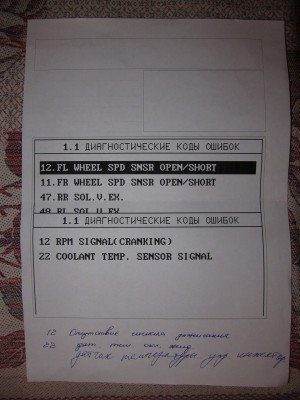 1.1 ДИАГНОСТИЧЕСКИЕ КОДЫ ОШИБОК
12.FL WHEEL SPD SNSR OPEN/SHORT
11.FR WHEEL SPD SNSR OPEN/SHORT
47.RR SOL.V.EX.
48 RL SOL V EX
1.1 ДИАГНОСТИЧЕСКИЕ КОДЫ ОШИБОК
12 RPM SIGNAL(CRANKING)
22 COOLANT TEMP. SENSOR SIGNAL
12 Отсутствие сигнала
22 дат. темп охл. жид
датчик температуры упр.